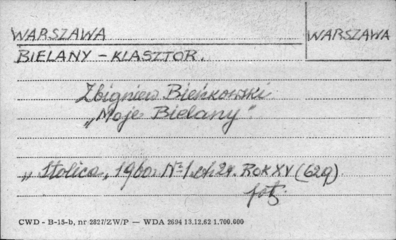 WARSZAWA WARSZAWA
BIELANY – KLASZTOR.
Zbigniew Bieńkowski
„Moje Bielany"
„Stolica, 1960. Nº 1. 24. ROK XV (629)
fot.
CWD - B-15-b, nr 2827/ZW/P — WDA 2694 13.12.62 1.700.000